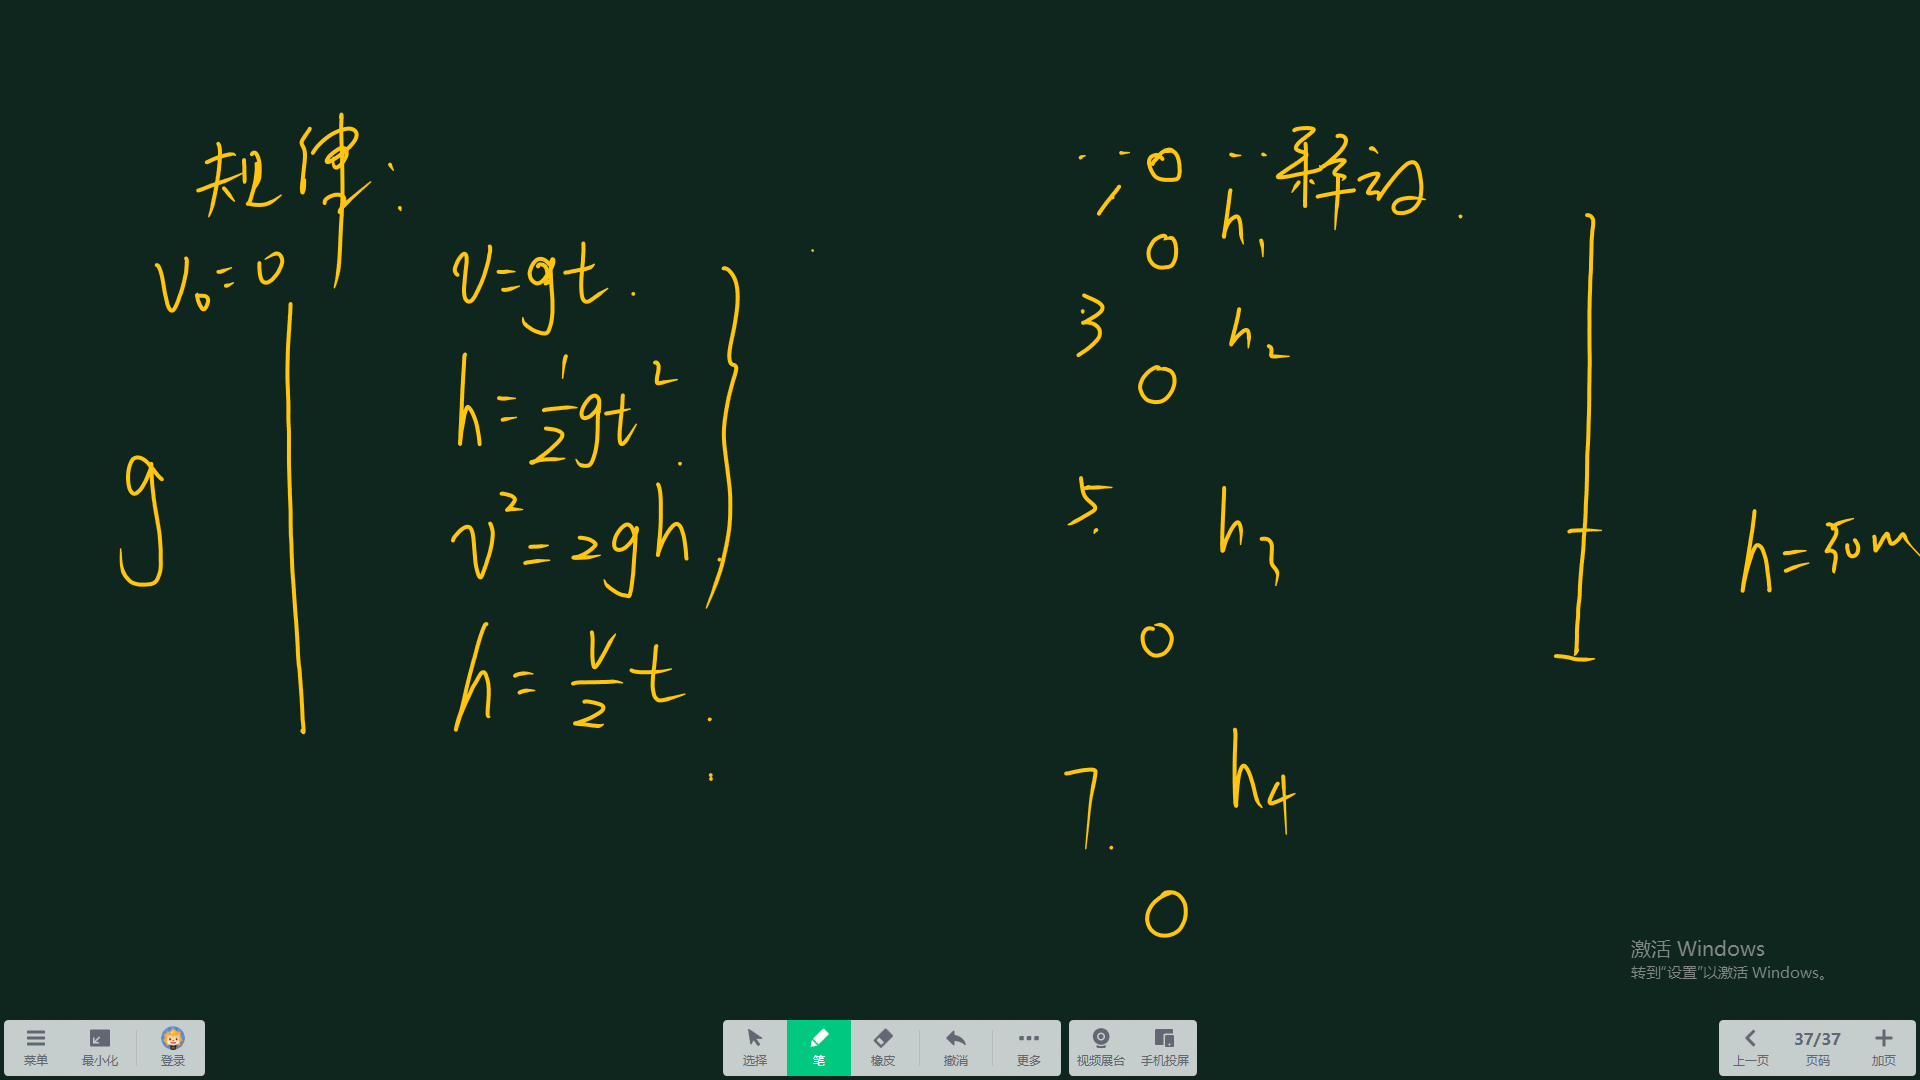 规律:
v₀=0
g
v=gt.
h=1/2gt².
v²=2gh.
h=v/2t.
1 0 释放.
h₁
0
3 h₂
0
5. h₃
0
7. h₄
0
h=50m
激活 Windows
转到“设置”以激活 Windows。
菜单 最小化 登录
选择 笔 橡皮 撤消 更多
视频展台 手机投屏
上一页 37/37 页码 加页